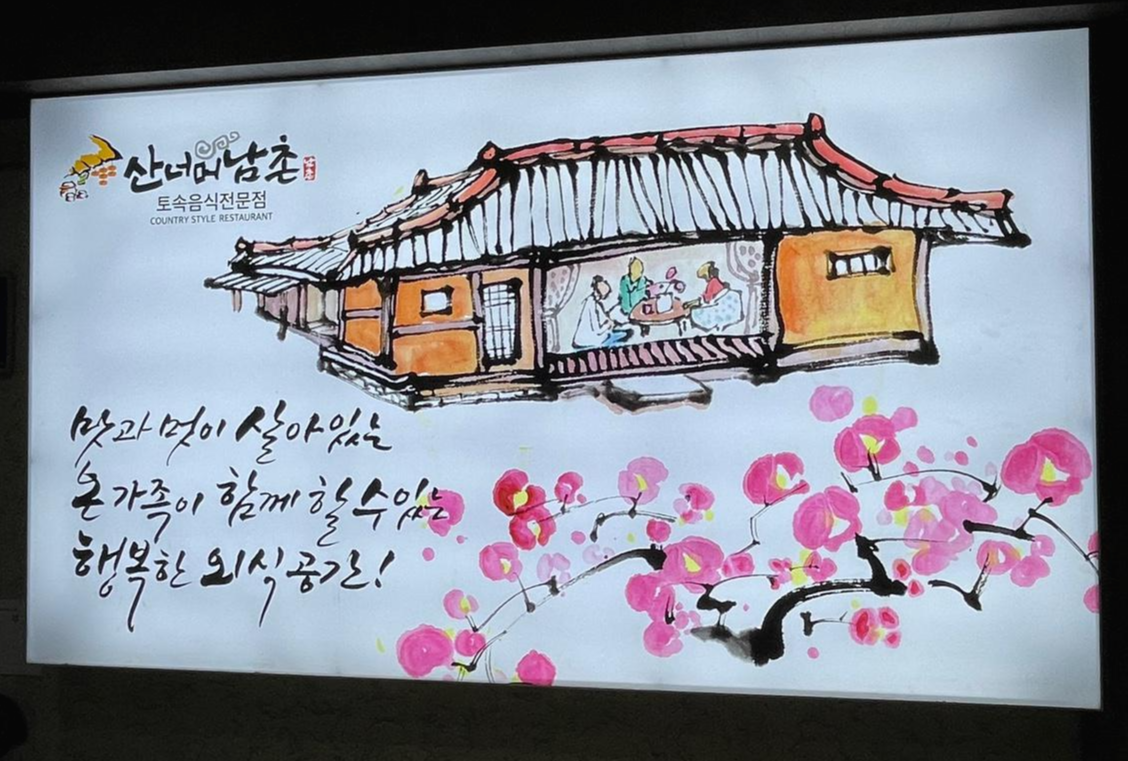 산너머남촌
토속음식전문점
COUNTRY STYLE RESTAURANT
맛과 멋이 살아있는
온가족이 함께 할 수 있는
행복한 외식공간!